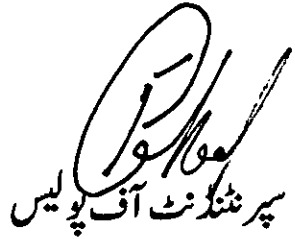 سپرنٹنڈنٹ آف پولیس